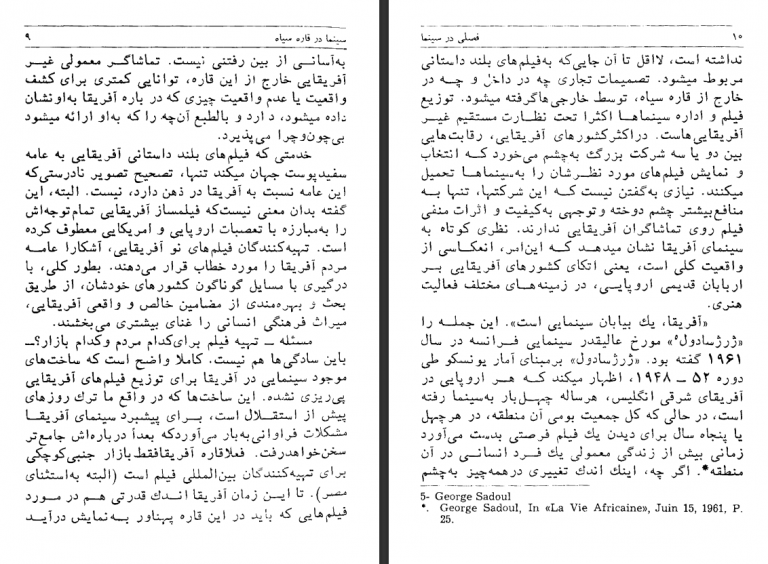 سینما در قاره سیاه ۹
به‌آسانی از بین رفتنی نیست. تماشاگر معمولی غیر
آفریقایی خارج از این قاره، توانایی کمتری برای کشف
واقعیت یا عدم واقعیت چیزی که در باره آفریقا به‌اونشان
داده میشود، دارد و بالطبع آن‌چه را که به‌او ارائه میشود
بی‌چون‌وچرا می‌پذیرد.
خدمتی که فیلم‌های بلند داستانی آفریقایی به عامه
سفیدپوست جهان میکند تنها، تصحیح تصویر نادرستی‌که
این عامه نسبت به آفریقا در ذهن دارد، نیست. البته، این
گفته بدان معنی نیست‌که فیلمساز آفریقایی تمام‌توجه‌اش
را به‌مبارزه با تعصبات اروپایی و امریکایی معطوف کرده
است. تهیه‌کنندگان فیلم‌های نو آفریقایی، آشکارا عامه
مردم آفریقا را مورد خطاب قرار می‌دهند. بطور کلی، با
درگیری با مسایل گوناگون کشورهای خودشان، از طریق
بحث و بهره‌مندی از مضامین خالص و واقعی آفریقایی،
میراث فرهنگی انسانی را غنای بیشتری می‌بخشند.
مسئله ــ تهیه فیلم برای‌کدام مردم وکدام بازار؟ــ
باین سادگی‌ها هم نیست. کاملا واضح است که ساخت‌های
موجود سینمایی در آفریقا برای توزیع فیلم‌های آفریقایی
پی‌ریزی نشده. این ساخت‌ها که در واقع ما ترك روزهای
پیش از استقلال است، برای پیشبرد سینمای آفریقا
مشکلات فراوانی‌به‌بار می‌آوردکه بعداً درباره‌اش جامع‌تر
سخن‌خواهدرفت. فعلاقاره آفریقافقط بازار جنبی‌کوچکی
برای تهیه‌کنندگان بین‌المللی فیلم است (البته به‌استثنای
مصر). تا این زمان آفریقا اندك قدرتی هم در مورد
فیلم‌هایی که باید در این قاره پهناور به‌نمایش درآید
۱۰ فصلی در سینما
نداشته است، لااقل تا آن جایی‌که به‌فیلم‌های بلند داستانی
مربوط میشود. تصمیمات تجاری چه در داخل و چه در
خارج از قاره سیاه، توسط خارجی‌هاگرفته میشود. توزیع
فیلم و اداره سینماها اکثرا تحت نظارت مستقیم غیر
آفریقایی‌هاست. دراکثرکشورهای آفریقایی، رقابت‌هایی
بین دو یا سه شرکت بزرگ به‌چشم می‌خورد که انتخاب
و نمایش فیلم‌های مورد نظرشان را به‌سینماها تحمیل
میکنند. نیازی به‌گفتن نیست که این شرکتها، تنها به
منافع‌بیشتر چشم دوخته و توجهی به‌کیفیت و اثرات منفی
فیلم روی تماشاگران آفریقایی ندارند. نظری کوتاه به
سینمای آفریقا نشان میدهد که این‌امر، انعکاسی از
واقعیت کلی است، یعنی اتکای کشورهای آفریقایی بر
اربابان قدیمی اروپایی، در زمینه‌های مختلف فعالیت
هنری.
«آفریقا، یك بیابان سینمایی است». این جمله را
«ژرژسادول⁵» مورخ عالیقدر سینمایی فرانسه در سال
۱۹۶۱ گفته بود. «ژرژسادول» برمبنای آمار یونسکو طی
دوره ۵۲ ــ ۱۹۴۸، اظهار میکند که هر اروپایی در
آفریقای شرقی انگلیس، هرساله چهل‌بار به‌سینما رفته
است، در حالی که کل جمعیت بومی آن منطقه، در هرچهل
یا پنجاه سال برای دیدن یك فیلم فرصتی بدست می‌آورد
زمانی بیش از زندگی معمولی یك فرد انسانی در آن
منطقه*. اگر چه، اینك اندك تغییری درهمه‌چیز به‌چشم
5- George Sadoul
*. George Sadoul, In «La Vie Africaine», Juin 15, 1961, P.
25.